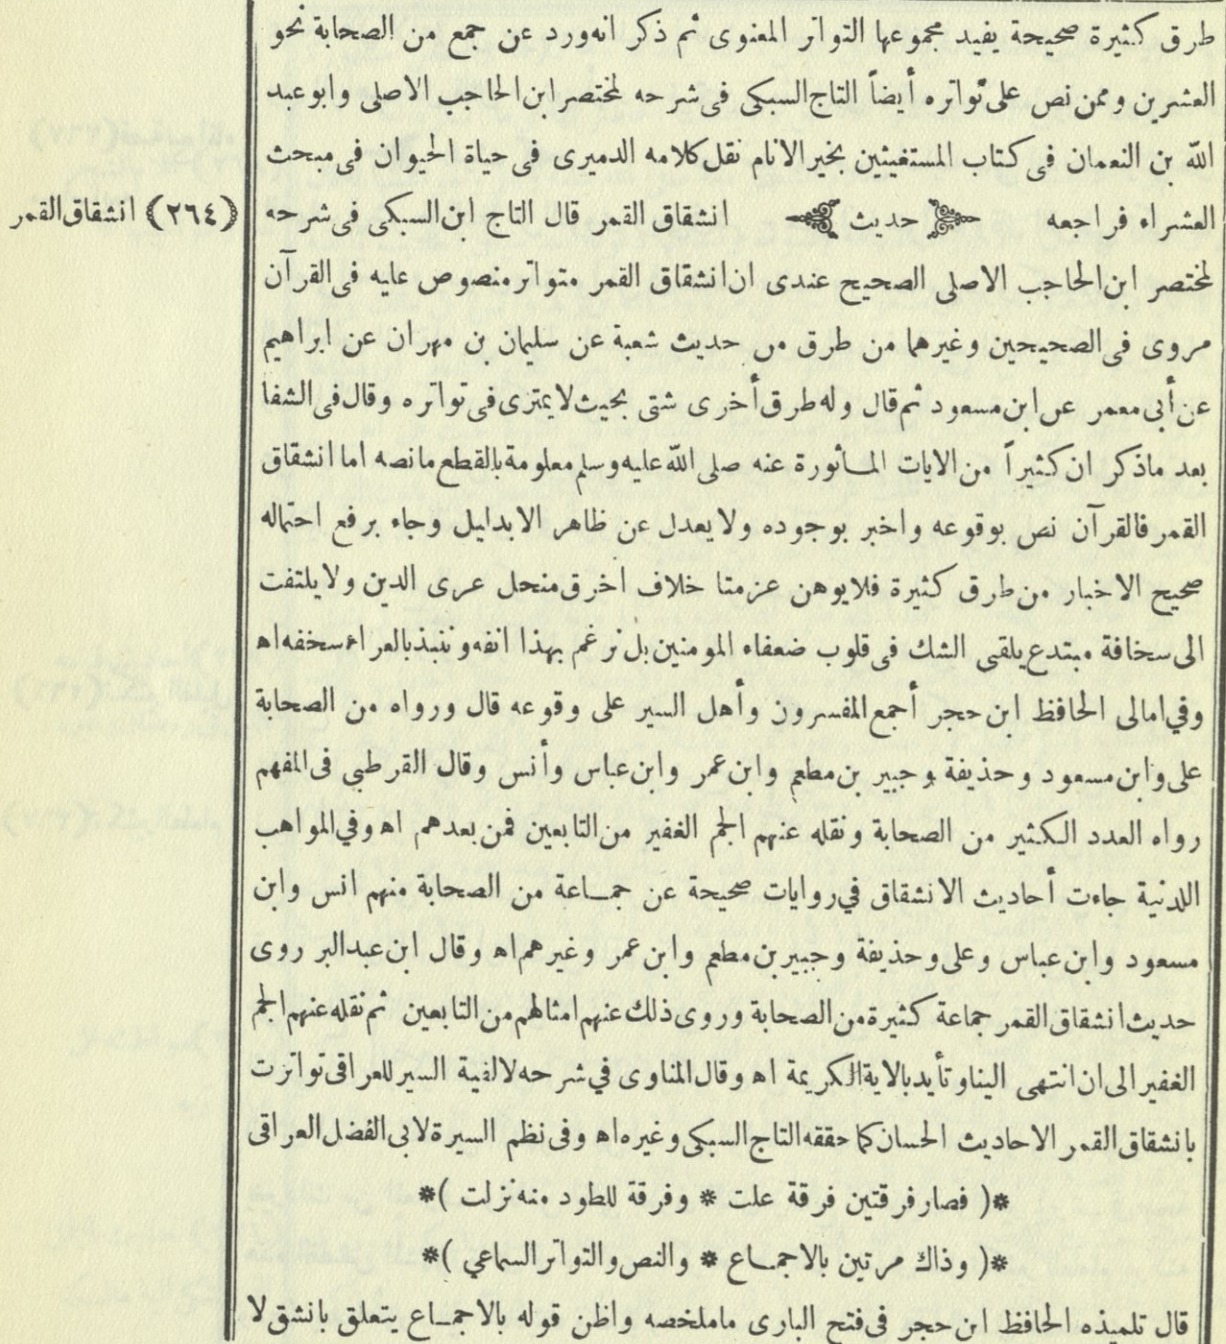 طرق كثيرة صحيحة يفيد مجموعها التواتر المعنوى ثم ذكر انه ورد عن جمع من الصحابة نحو
العشرين وممن نص على تواتره أيضاً التاج السبكى فى شرحه لمختصر ابن الحاجب الاصلى وابو عبد
الله بن النعمان فى كتاب المستغيثين بخير الانام نقل كلامه الدميرى فى حياة الحيوان فى مبحث
العشراء فراجعه حديث انشقاق القمر قال التاج ابن السبكى فى شرحه
﴿٢٦٤﴾ انشقاق القمر
لمختصر ابن الحاجب الاصلى الصحيح عندى ان انشقاق القمر متواتر منصوص عليه فى القرآن
مروى فى الصحيحين وغيرهما من طرق من حديث شعبة عن سليمان بن مهران عن ابراهيم
عن أبى معمر عن ابن مسعود ثم قال وله طرق أخرى شتى بحيث لا يمترى فى تواتره وقال فى الشفا
بعد ماذكر ان كثيراً من الايات المـأثورة عنه صلى الله عليه وسلم معلومة بالقطع مانصه اما انشقاق
القمر فالقرآن نص بوقوعه واخبر بوجوده ولا يعدل عن ظاهر الابدليل وجاء برفع احتماله
صحيح الاخبار من طرق كثيرة فلا يوهن عزمتا خلاف اخرق منحل عرى الدين ولا يلتفت
الى سخافة مبتدع يلقى الشك فى قلوب ضعفاء المومنين بل نرغم بهذا انفه وننبذ بالعراء سخفه اه
وفي امالى الحافظ ابن حجر أجمع المفسرون وأهل السير على وقوعه قال ورواه من الصحابة
على وابن مسعود وحذيفة وجبير بن مطعم وابن عمر وابن عباس وأنس وقال القرطبى فى المفهم
رواه العدد الكثير من الصحابة ونقله عنهم الجم الغفير من التابعين فمن بعدهم اه وفي المواهب
اللدنية جاءت أحاديث الانشقاق في روايات صحيحة عن جمـاعة من الصحابة منهم انس وابن
مسعود وابن عباس وعلى وحذيفة وجبير بن مطعم وابن عمر وغيرهم اه وقال ابن عبد البر روى
حديث انشقاق القمر جماعة كثيرة من الصحابة وروى ذلك عنهم امثالهم من التابعين ثم نقله عنهم الجم
الغفير الى ان انتهى الينا وتأيد بالاية الكريمة اه وقال المناوى في شرحه لالفية السير للعراقى تواترت
بانشقاق القمر الاحاديث الحسان كما حققه التاج السبكى وغيره اه وفى نظم السيرة لابى الفضل العراقى
*( فصار فرقتين فرقة علت * وفرقة للطود منه نزلت )*
*( وذاك مرتين بالاجمـاع * والنص والتواتر السماعي )*
قال تلميذه الحافظ ابن حجر فى فتح البارى ماملخصه واظن قوله بالاجمـاع يتعلق بانشق لا